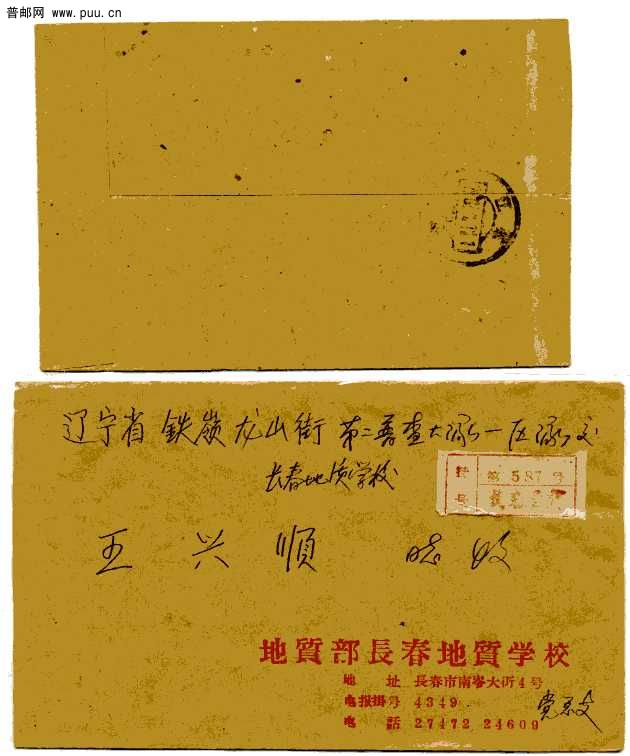 普邮网 www.puu.cn
辽宁省 铁岺 龙山街 第二普查大队一区队交
长春地质学校
第 587 号
王 兴 順
地質部長春地質学校
地 址 長春市南岺大街4号
电报掛号 4349
电 話 27472 24609